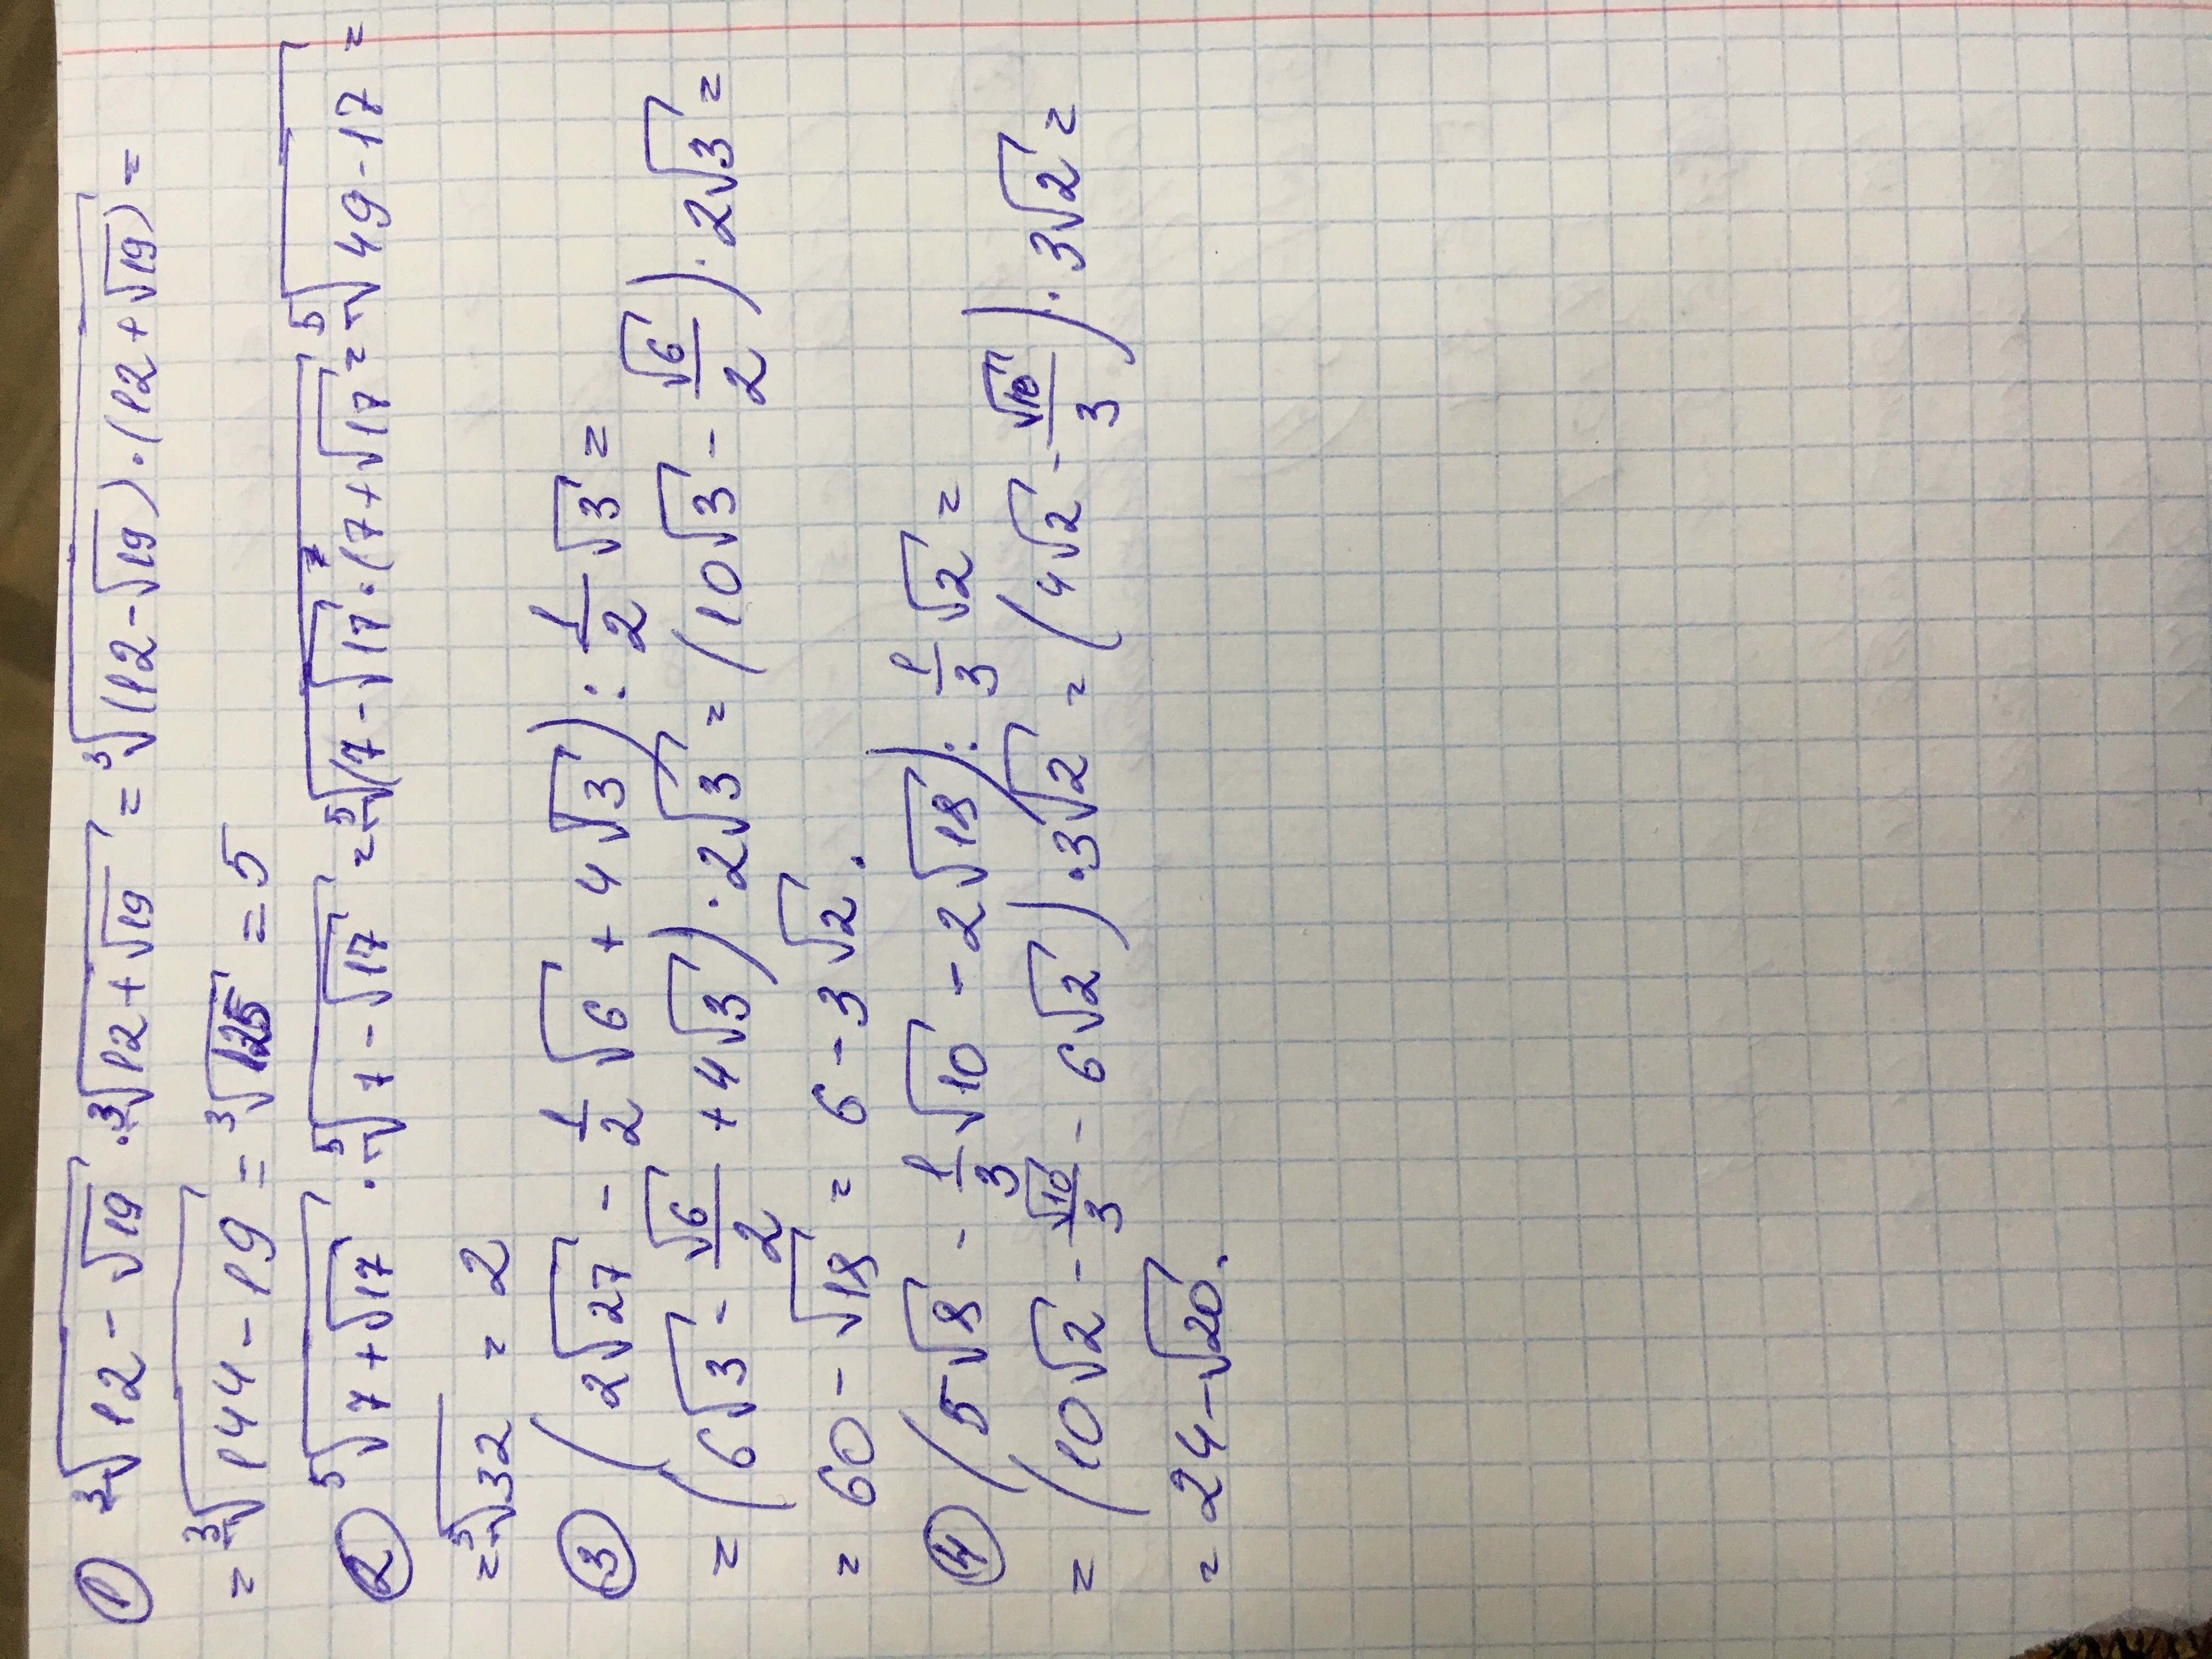 ① ∛(12 - √19) · ∛(12 + √19) = ∛((12 - √19) · (12 + √19)) =
= ∛(144 - 19) = ∛125 = 5
② ⁵√(7 + √17) · ⁵√(7 - √17) = ⁵√((7 - √17 · (7 + √17) = ⁵√(49 - 17) =
= ⁵√32 = 2
③ (2√27 - 1/2 √6 + 4√3) : 1/2 √3 =
= (6√3 - √6/2 + 4√3) · 2√3 = (10√3 - √6/2) · 2√3 =
= 60 - √18 = 6 - 3√2.
④ (5√8 - 1/3 √10 - 2√18) : 1/3 √2 =
= (10√2 - √10/3 - 6√2) · 3√2 = (4√2 - √10/3) · 3√2 =
= 24 - √20.